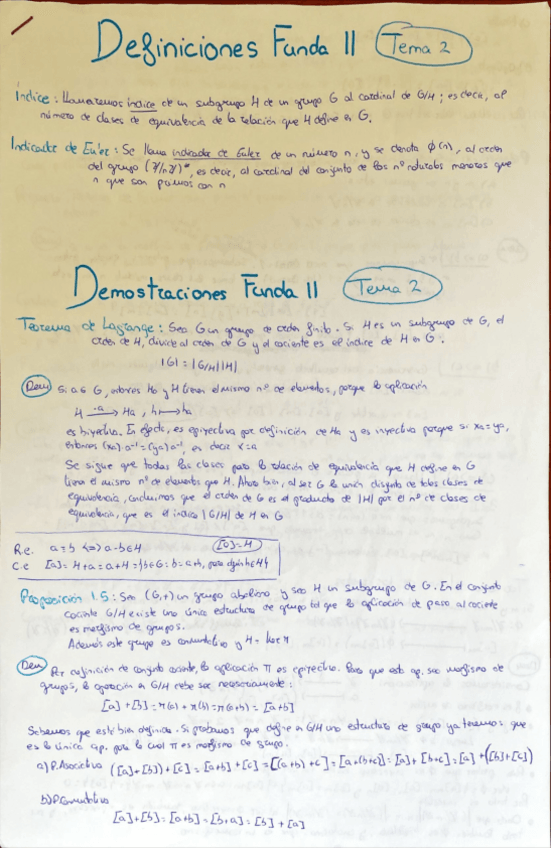 Definiciones Funda II Tema 2
Índice: Llamaremos índice de un subgrupo H de un grupo G al cardinal de G/H; es decir, al
número de clases de equivalencia de la relación que H define en G.
Indicador de Euler: Se llama indicador de Euler de un número n, y se denota φ(n), al orden
del grupo (Z/nZ)*, es decir, al cardinal del conjunto de los nº naturales menores que
n que son primos con n
Demostraciones Funda II Tema 2
Teorema de Lagrange: Sea G un grupo de orden finito. Si H es un subgrupo de G, el
orden de H, divide al orden de G y el cociente es el índice de H en G.
|G| = |G/H||H|
Dem Si a ∈ G, entonces Ha y H tienen el mismo nº de elementos, porque la aplicación
H —·a→ Ha, h ↦ ha
es biyectiva. En efecto, es epiyectiva por definición de Ha y es inyectiva porque si xa=ya,
entonces (xa)a⁻¹=(ya)a⁻¹, es decir x=a
Se sigue que todas las clases para la relación de equivalencia que H define en G
tienen el mismo nº de elementos que H. Ahora bien, al ser G la unión disjunta de tales clases de
equivalencia, concluimos que el orden de G es el producto de |H| por el nº de clases de
equivalencia, que es el índice |G/H| de H en G
R.e. a≡b <=> a-b∈H [0]=H
C.e [a] = H+a = a+H = {b∈G: b=a+h, para algún h∈H}
Proposición 1.5: Sea (G,+) un grupo abeliano y sea H un subgrupo de G. En el conjunto
cociente G/H existe una única estructura de grupo tal que la aplicación de paso al cociente
es morfismo de grupos.
Además este grupo es conmutativo y H = ker π
Dem Por definición de conjunto cociente, la aplicación π es epiyectiva. Para que esta ap. sea morfismo de
grupos, la operación en G/H debe ser necesariamente:
[a] + [b] = π(a) + π(b) = π(a+b) = [a+b]
Sabemos que está bien definida. Si probamos que define en G/H una estructura de grupo ya tenemos que
es la única ap. para la cual π es morfismo de grupo.
a) P. Asociativa ([a]+[b])+[c] = [a+b]+[c] = [(a+b)+c] = [a+(b+c)] = [a]+[b+c] = [a]+([b]+[c])
b) P. Conmutativa
[a]+[b] = [a+b] = [b+a] = [b]+[a]